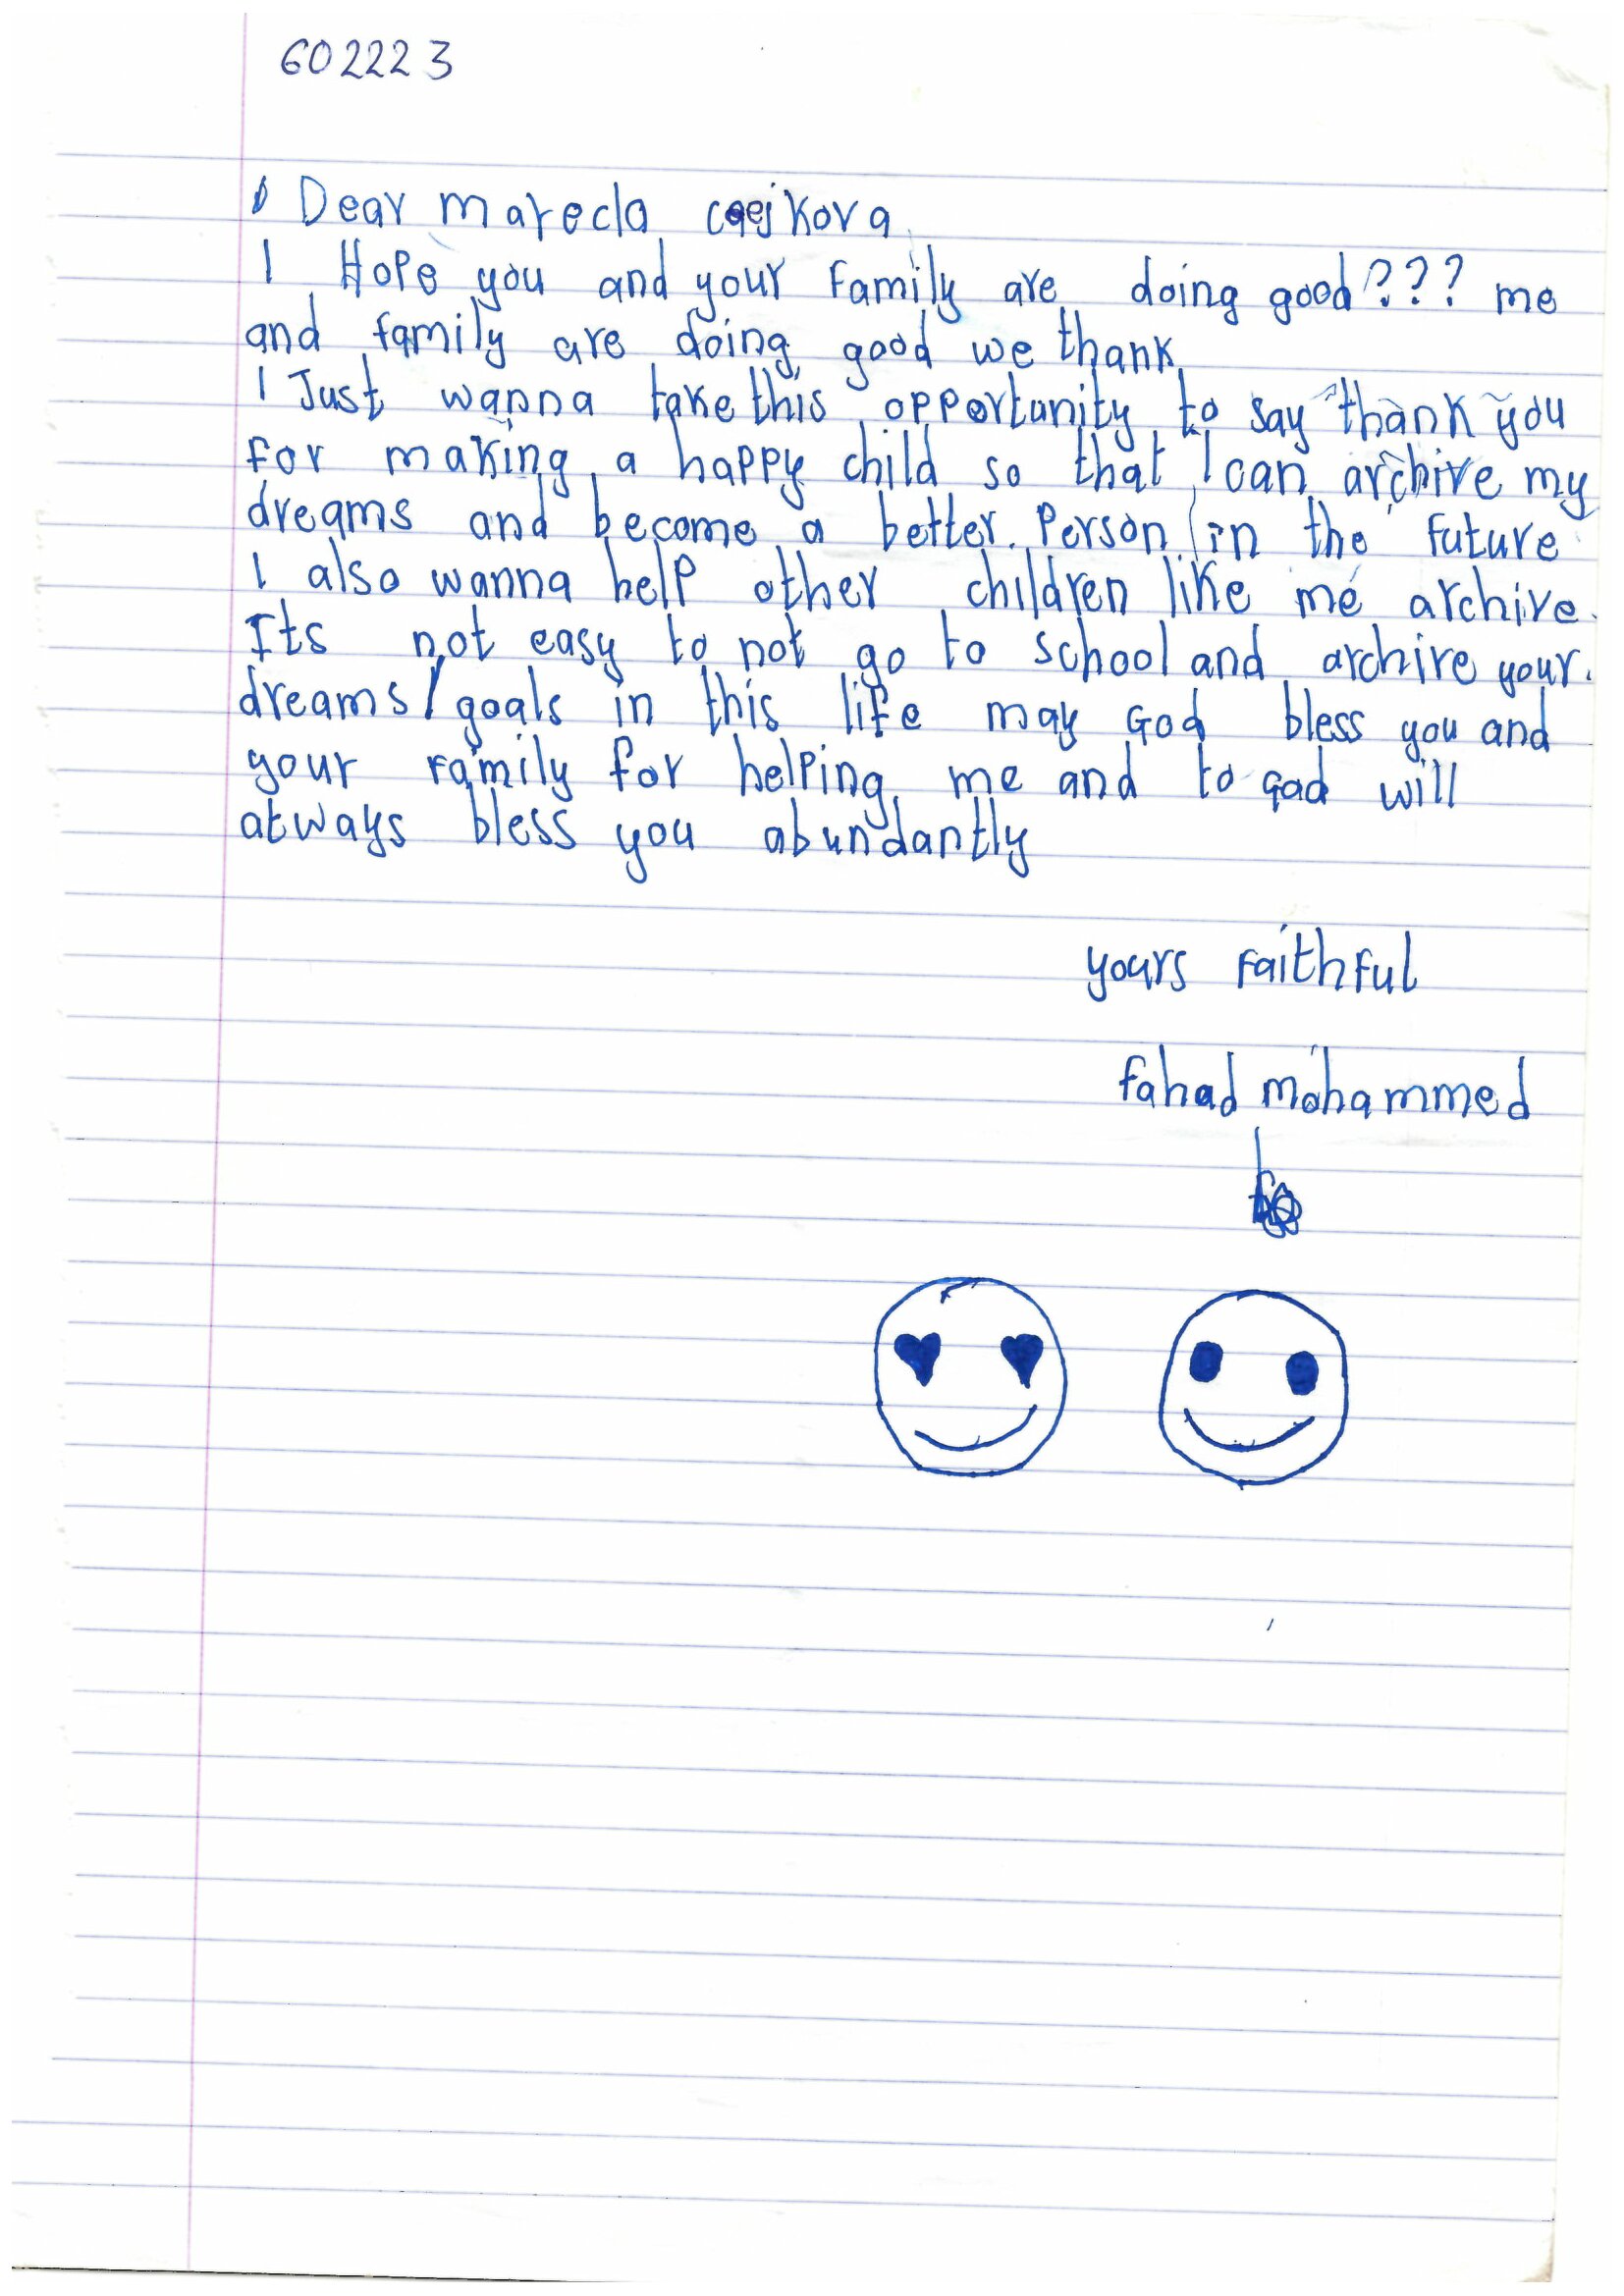 602223
Dear marecla
I Hope you and your Family are doing good??? me
and family are doing good we thank
I Just wanna take this opportunity to say thank you
for making a happy child so that I can archive my
dreams and become a better person in the future
I also wanna help other children like me archive.
Its not easy to not go to school and archive your.
dreams/goals in this life may God bless you and
your family for helping me and to god will
always bless you abundantly
yours Faithful
fahad mohammed